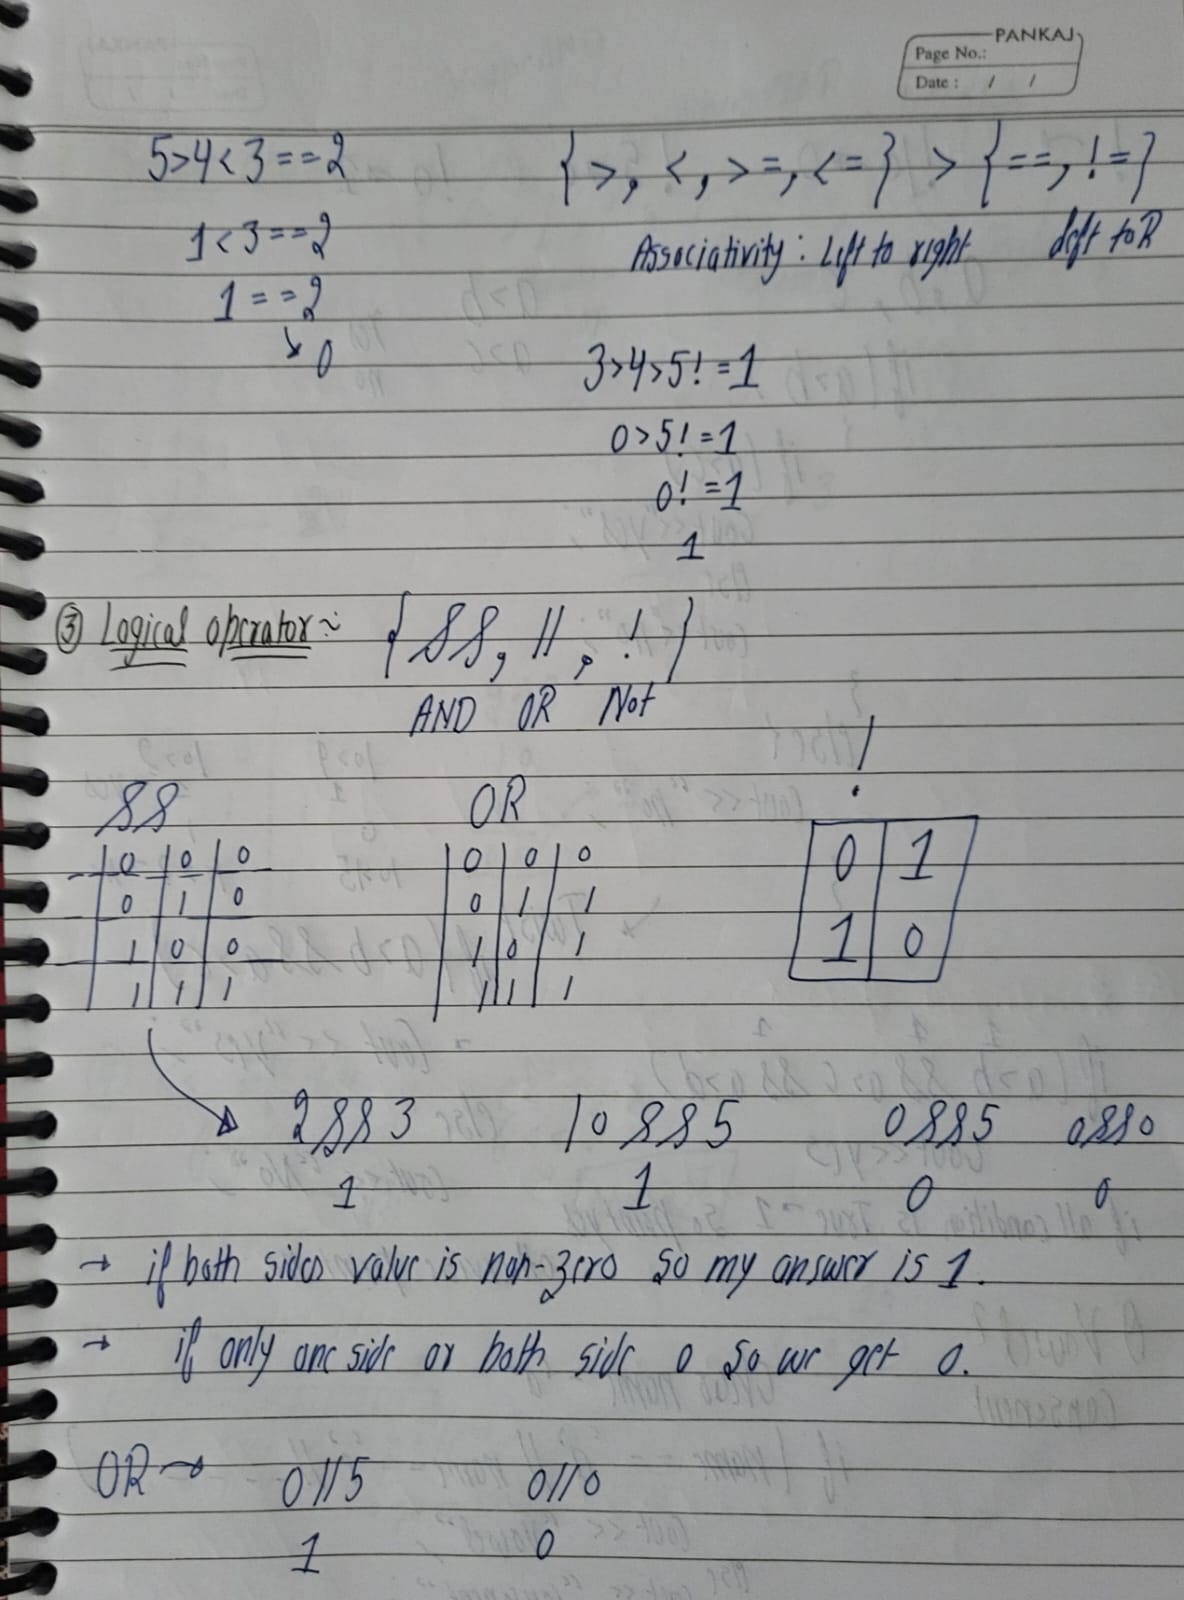 PANKAJ
Page No.:
Date : / /
5>4<3==2 {>, <, >=, <=} > {==, !=}
1<3==2 Associativity: Left to right Left to R
1==2
↘ 0
3>4>5!=1
0>5!=1
0!=1
1
③ Logical operator:~ {&&, ||, !}
AND OR Not
&& OR !
0 0 0 0 0 0 0 1
0 1 0 0 1 1
1 0 0 1 0 1 1 0
1 1 1 1 1 1
2&&3 10&&5 0&&5 0&&0
1 1 0 0
→ if both sides value is non-zero so my answer is 1.
→ if only one side or both side 0 so we get 0.
OR → 0||5 0||0
1 0